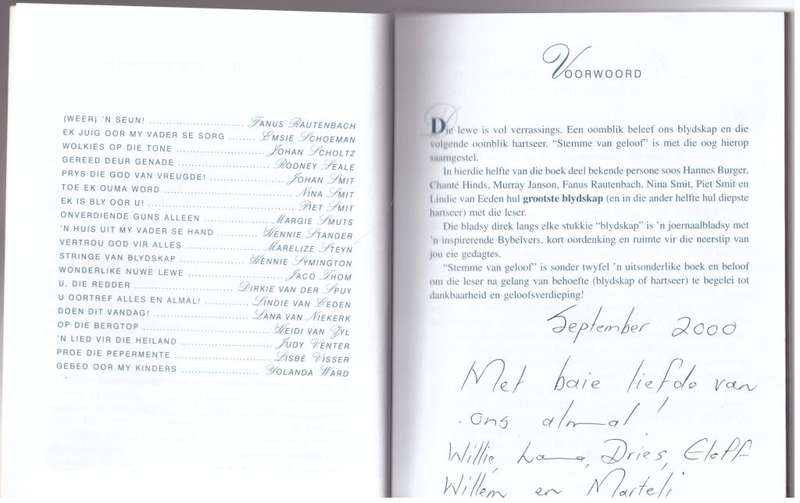 (WEER) 'N SEUN! ........................ FANUS RAUTENBACH
EK JUIG OOR MY VADER SE SORG ....... EMSIE SCHOEMAN
WOLKIES OP DIE TONE ........................ JOHAN SCHOLTZ
GEREED DEUR GENADE ........................ RODNEY SEALE
PRYS DIE GOD VAN VREUGDE! ........................ JOHAN SMIT
TOE EK OUMA WORD ........................ NINA SMIT
EK IS BLY OOR U! ........................ PIET SMIT
ONVERDIENDE GUNS ALLEEN ........................ MARGIE SMUTS
'N HUIS UIT MY VADER SE HAND ............ HENNIE STANDER
VERTROU GOD VIR ALLES ........................ MARELIZE STEYN
STRINGE VAN BLYDSKAP ................ HENNIE SYMINGTON
WONDERLIKE NUWE LEWE ........................ JACO THOM
U, DIE REDDER ........................ DIRKIE VAN DER SPUY
U OORTREF ALLES EN ALMAL! ........... LINDIE VAN EEDEN
DOEN DIT VANDAG! ........................ LANA VAN NIEKERK
OP DIE BERGTOP ........................ HEIDI VAN ZYL
'N LIED VIR DIE HEILAND ........................ JUDY VENTER
PROE DIE PEPERMENTE ........................ LISBÉ VISSER
GEBED OOR MY KINDERS ........................ YOLANDA WARD
VOORWOORD
Die lewe is vol verrassings. Een oomblik beleef ons blydskap en die
volgende oomblik hartseer. "Stemme van geloof" is met die oog hierop
saamgestel.
In hierdie helfte van die boek deel bekende persone soos Hannes Burger,
Chanté Hinds, Murray Janson, Fanus Rautenbach, Nina Smit, Piet Smit en
Lindie van Eeden hul grootste blydskap (en in die ander helfte hul diepste
hartseer) met die leser.
Die bladsy direk langs elke stukkie "blydskap" is 'n joernaalbladsy met
'n inspirerende Bybelvers, kort oordenking en ruimte vir die neerstip van
jou eie gedagtes.
"Stemme van geloof" is sonder twyfel 'n uitsonderlike boek en beloof
om die leser na gelang van behoefte (blydskap of hartseer) te begelei tot
dankbaarheid en geloofsverdieping!
September 2000
Met baie liefde van
ons almal!
Willie, Dries,
Willem en Marteli